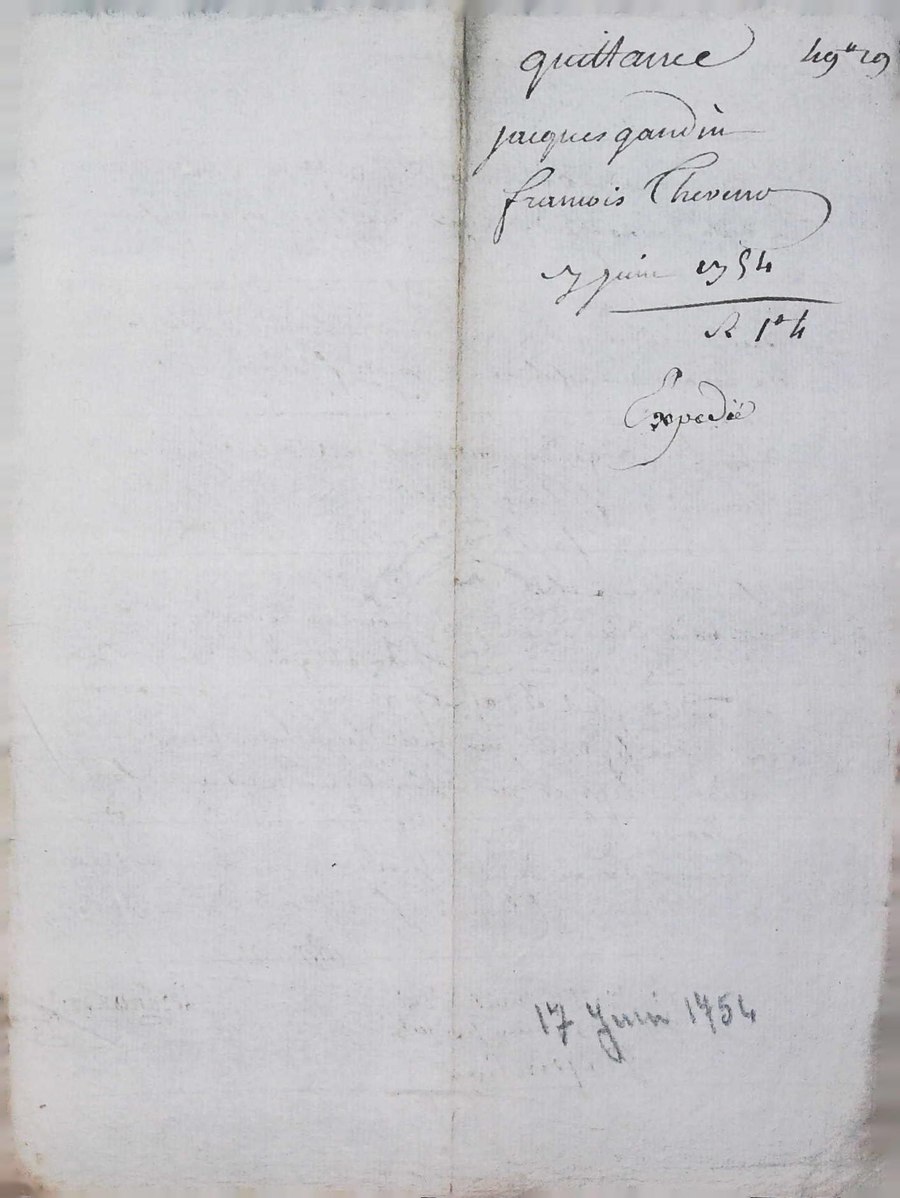 quittance 49ᵗᵗ 19
jacques gaudin
francois Theveno
17 juin 1754
R 1ᵗᵗ 4
Expedié
17 Juin 1754